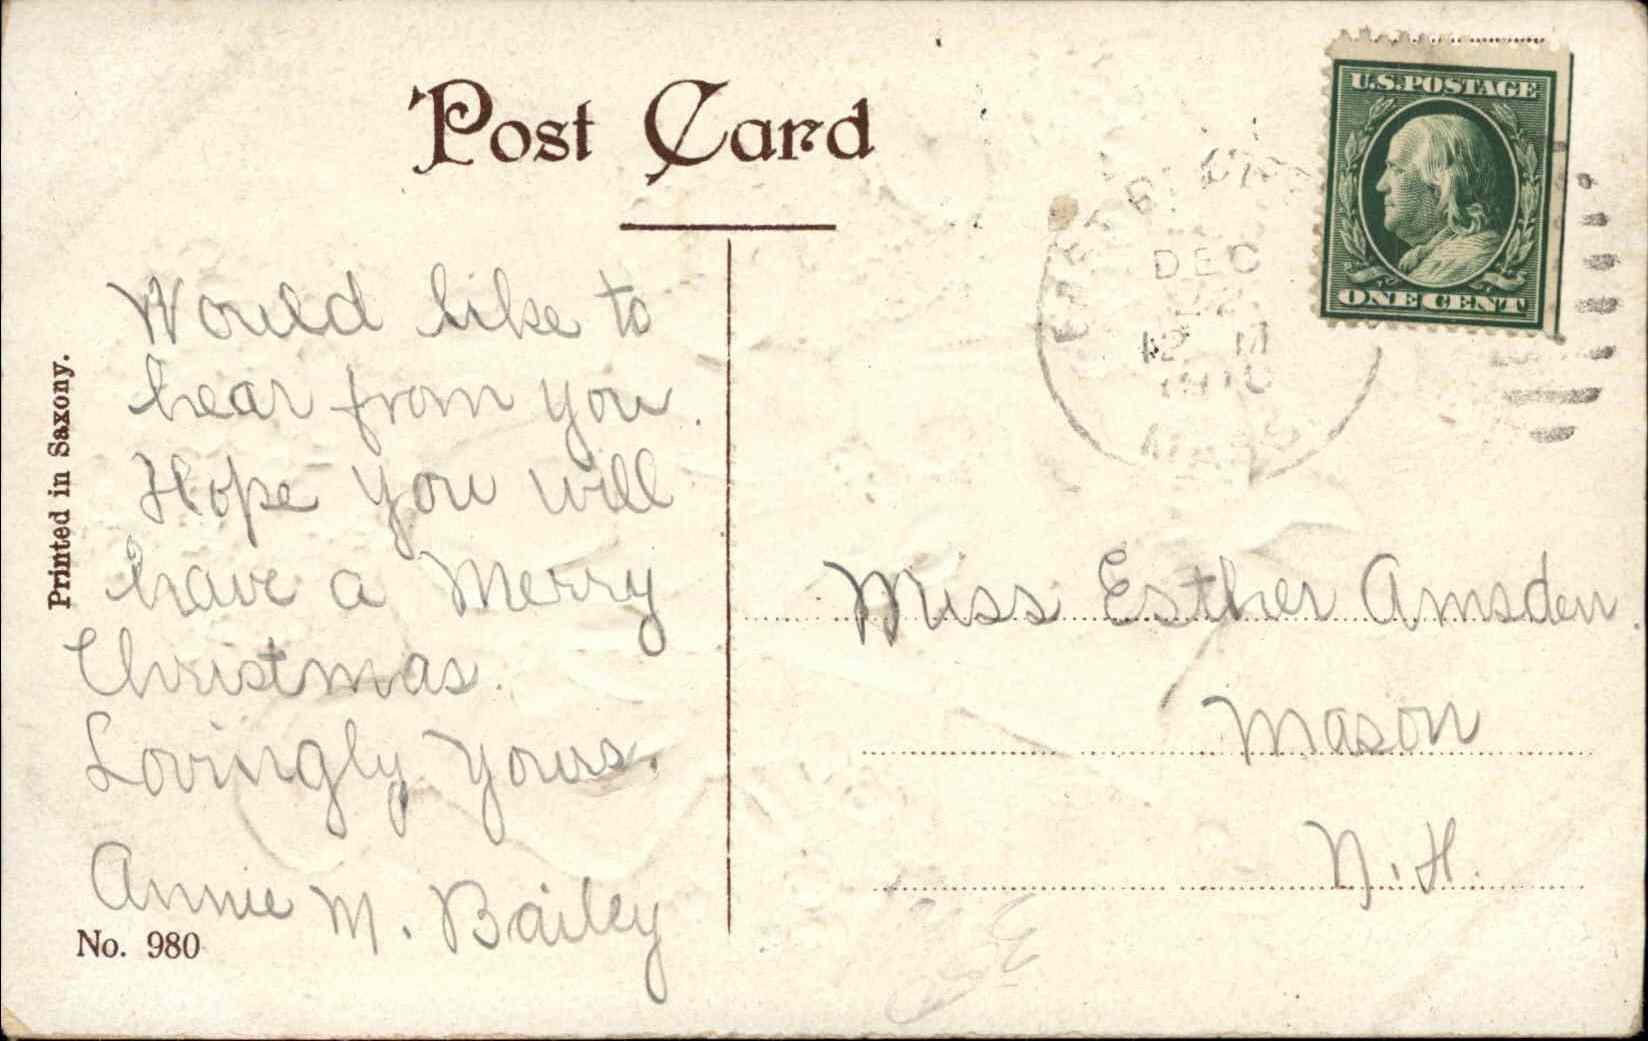 Post Card
U.S. POSTAGE
ONE CENT
DEC
12 M
1910
MASS
Would like to
hear from you.
Hope you will
have a Merry
Christmas.
Lovingly yours.
Annie M. Bailey
Miss Esther Amsden.
Mason
N.H.
Printed in Saxony.
No. 980